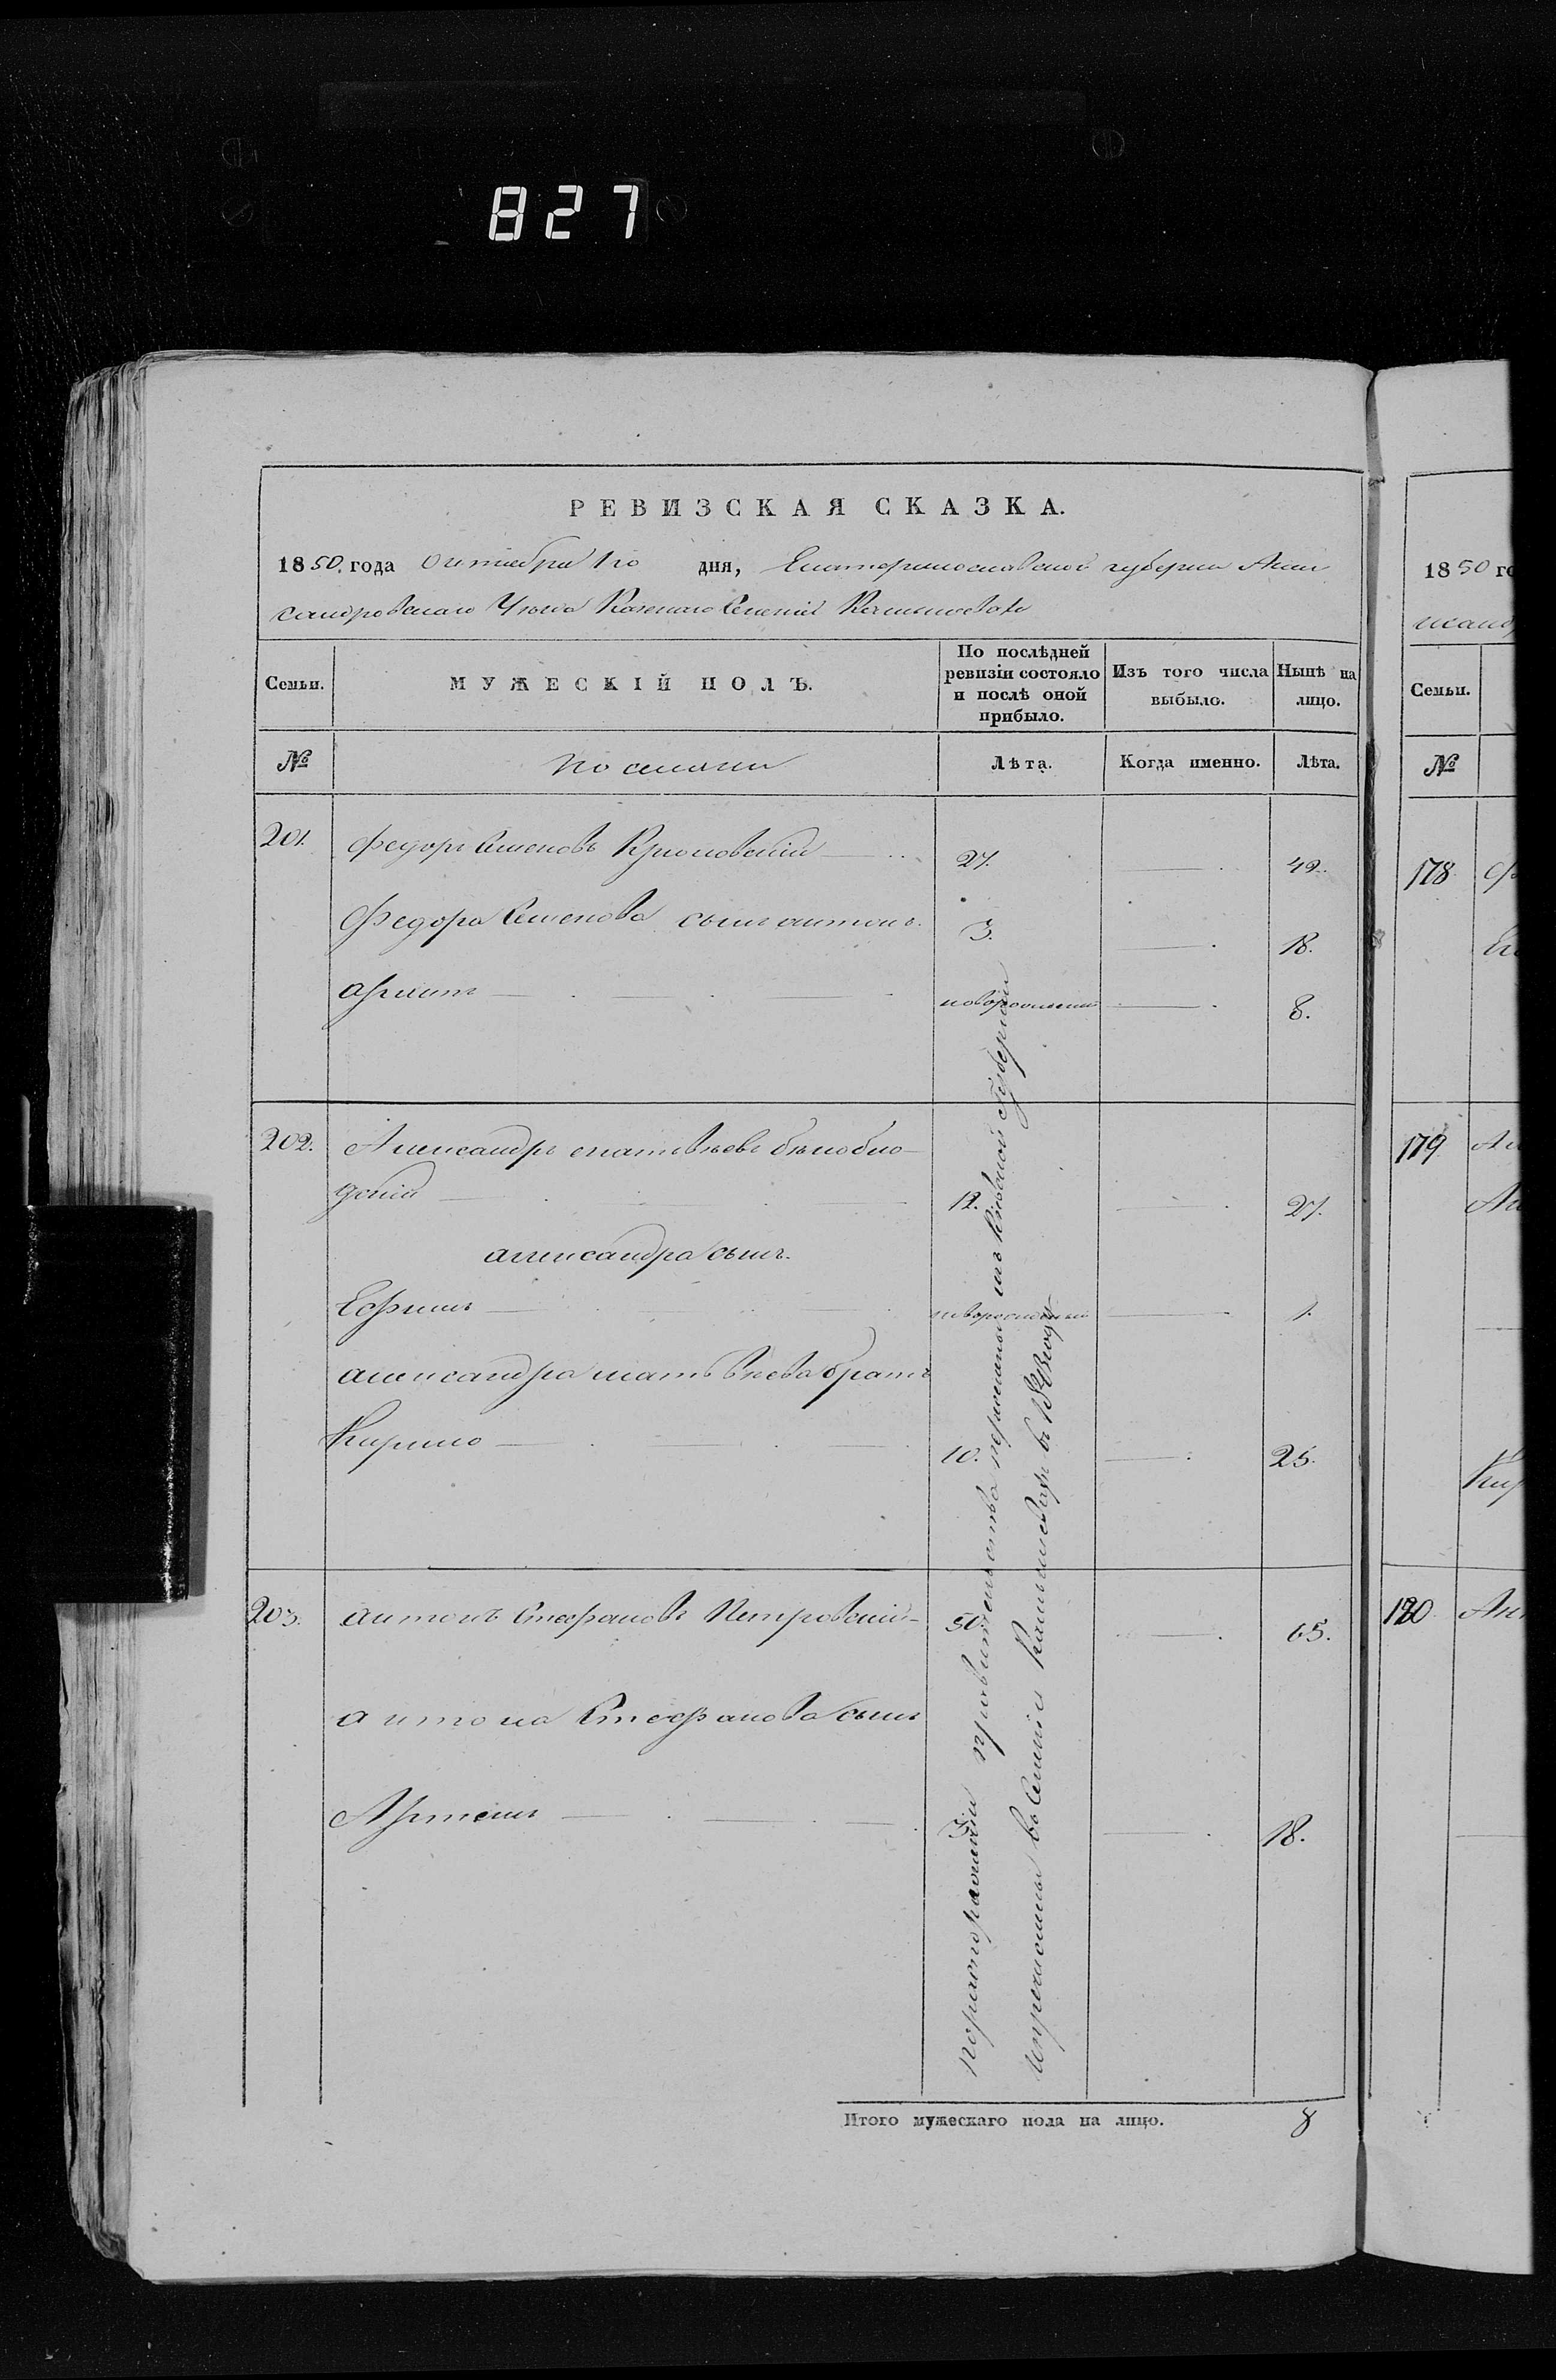 827
РЕВИЗСКАЯ СКАЗКА.
1850. года Октября 1го дня, Екатеринославской губернии Алек
сандровскаго Уезда Казеннаго Селенія
Семьи.
МУЖЕСКІЙ ПОЛЪ.
По послѣдней ревизіи состояло и послѣ оной прибыло.
Изъ того числа выбыло.
Нынѣ на лицо.
№
Лѣта.
Когда именно.
Лѣта.
201. Федоръ Семеновъ Крюковскій 27. 42.
Федора Семенова сынъ антонъ. 3. 18.
архипъ новорожденный 8.
202. Александръ матвѣевъ бѣлобло-
дскій 12. 27.
александра сынъ.
Ефимъ новорожденный 1.
александра матвѣева братъ
Кирило 10. 25.
203. антонъ Стефановъ Петровскій 50. 65.
антона Стефанова сынъ
Артемъ 3. 18.
по распоряженію правительства переселены изъ Кіевской Губерніи
и причислены въ Селеніи въ году
Итого мужескаго пола на лицо. 8
1850 го
Семьи.
№
178
179 Ал
Ал
Кир
180 Ан